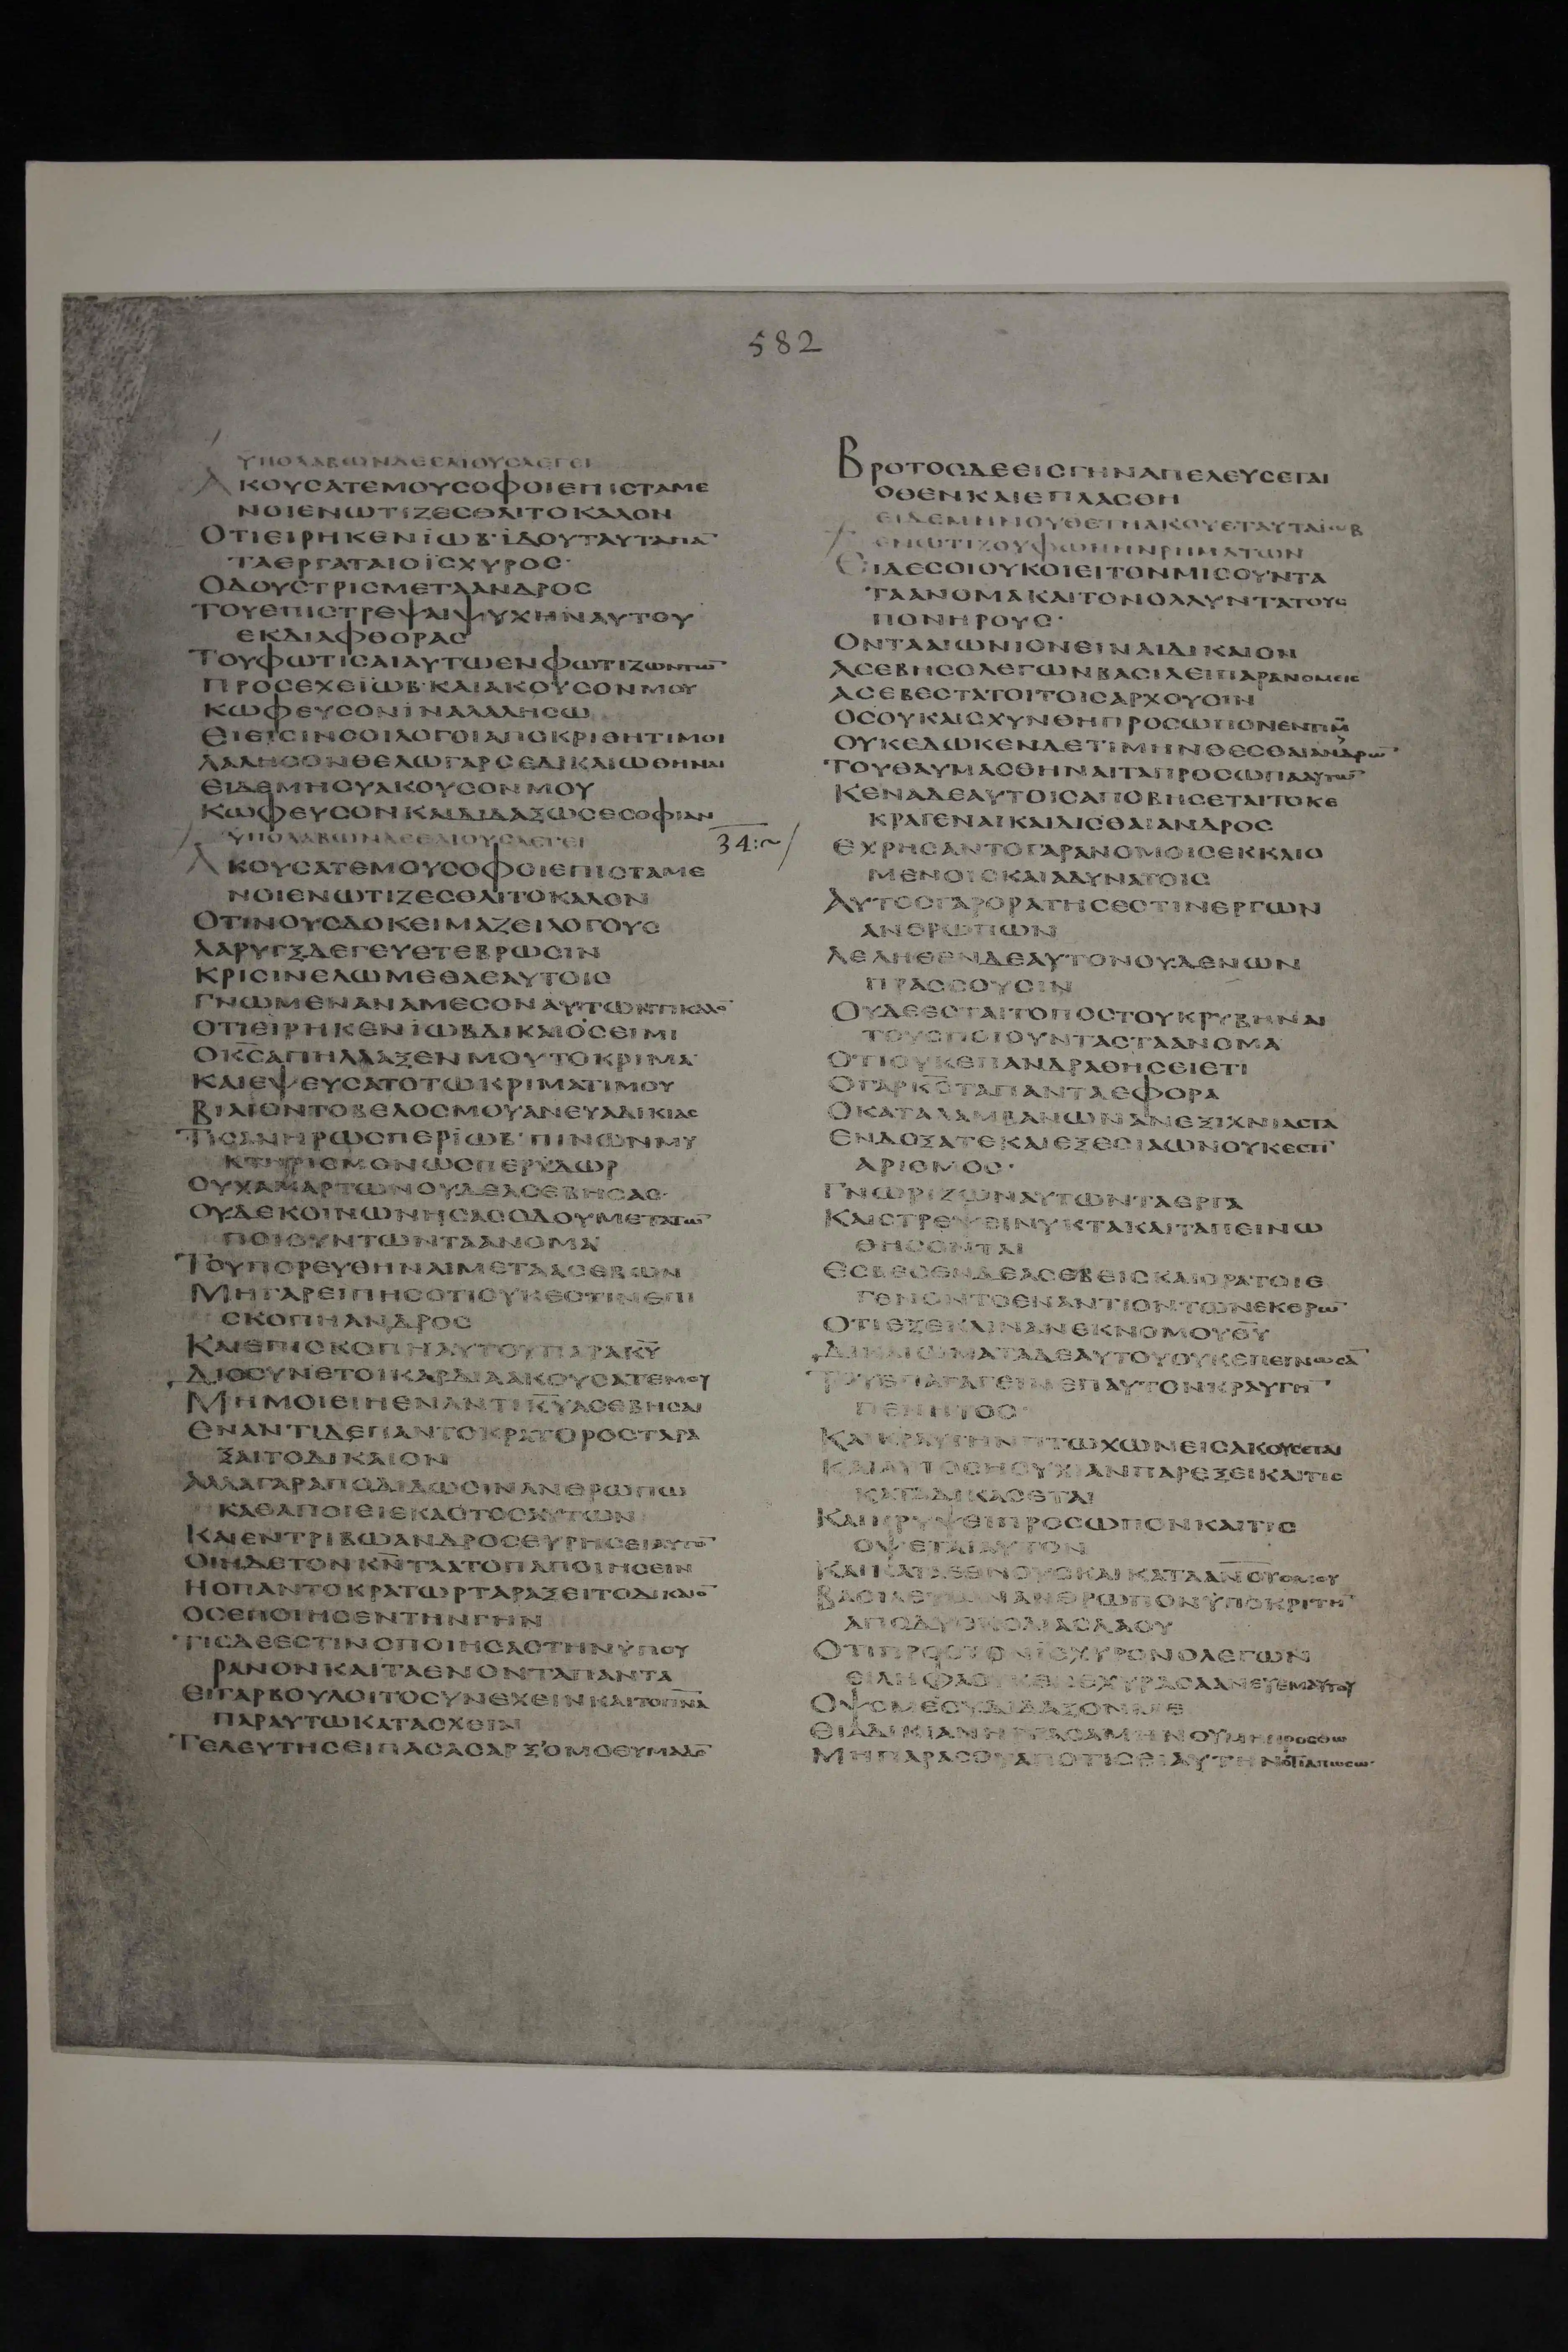 582
ΥΠΟΛΑΒΩΝΔΕΕΛΙΟΥΣΛΕΓΕΙ
ΑΚΟΥСΑΤΕΜΟΥСΟΦΟΙΕΠΙСΤΑΜΕ
ΝΟΙΕΝΩΤΙΖΕСΘΑΙΤΟΚΑΛΟΝ
ΟΤΙΕΙΡΗΚΕΝΪΩΒ·ΪΔΟΥΤΑΥΤΑΠΑ̅
ΤΑΕΡΓΑΤΑΙΟΪСΧΥΡΟС·
ΟΔΟΥСΤΡΙСΜΕΤΑΑΝΔΡΟС
ΤΟΥΕΠΙСΤΡΕΨΑΙΨΥΧΗΝΑΥΤΟΥ
ΕΚΔΙΑΦΘΟΡΑС
ΤΟΥΦΩΤΙСΑΙΑΥΤΩΕΝΦΩΤΙΖΩΝΤΩ̅
ΠΡΟСΕΧΕΪΩΒ·ΚΑΙΑΚΟΥСΟΝΜΟΥ
ΚΩΦΕΥСΟΝΪΝΑΛΑΛΗСΩ
ΕΙΕΙСΙΝСΟΙΛΟΓΟΙΑΠΟΚΡΙΘΗΤΙΜΟΙ
ΛΑΛΗСΟΝΘΕΛΩΓΑΡСΕΔΙΚΑΙΩΘΗΝΑΙ
ΕΙΔΕΜΗСΥΑΚΟΥСΟΝΜΟΥ
ΚΩΦΕΥСΟΝΚΑΙΔΙΔΑΞΩСΕСΟΦΙΑΝ
ΥΠΟΛΑΒΩΝΔΕΕΛΙΟΥСΛΕΓΕΙ
34:~
ΑΚΟΥСΑΤΕΜΟΥСΟΦΟΙΕΠΙСΤΑΜΕ
ΝΟΙΕΝΩΤΙΖΕСΘΑΙΤΟΚΑΛΟΝ
ΟΤΙΝΟΥСΔΟΚΕΙΜΑΖΕΙΛΟΓΟΥС
ΛΑΡΥΓΞΔΕΓΕΥΕΤΕΒΡΩСΙΝ
ΚΡΙСΙΝΕΛΩΜΕΘΑΕΑΥΤΟΙС
ΓΝΩΜΕΝΑΝΑΜΕСΟΝΑΥΤΩΝΤΙΚΑΛΟ̅
ΟΤΙΕΙΡΗΚΕΝΪΩΒΔΙΚΑΙΟСΕΙΜΙ
ΟΚ̅С̅ΑΠΗΛΛΑΞΕΝΜΟΥΤΟΚΡΙΜΑ
ΚΑΙΕΨΕΥСΑΤΟΤΩΚΡΙΜΑΤΙΜΟΥ
ΒΙΑΙΟΝΤΟΒΕΛΟСΜΟΥΑΝΕΥΑΔΙΚΙΑС
ΤΙСΑΝΗΡΩСΠΕΡΪΩΒ·ΠΙΝΩΝΜΥ
ΚΤΗΡΙСΜΟΝΩСΠΕΡΫΔΩΡ
ΟΥΧΑΜΑΡΤΩΝΟΥΔΕΑСΕΒΗСΑС·
ΟΥΔΕΚΟΙΝΩΝΗСΑСΟΔΟΥΜΕΤΑΤΩ̅
ΠΟΙΟΥΝΤΩΝΤΑΑΝΟΜΑ
ΤΟΥΠΟΡΕΥΘΗΝΑΙΜΕΤΑΑСΕΒΩΝ
ΜΗΓΑΡΕΙΠΗСΟΤΙΟΥΚΕСΤΙΝΕΠΙ
СΚΟΠΗΑΝΔΡΟС
ΚΑΙΕΠΙСΚΟΠΗΑΥΤΩΠΑΡΑΚ̅Υ̅
ΔΙΟСΥΝΕΤΟΙΚΑΡΔΙΑΑΚΟΥСΑΤΕΜΟΥ
ΜΗΜΟΙΕΙΗΕΝΑΝΤΙΚ̅Υ̅ΑСΕΒΗСΑΙ
ΕΝΑΝΤΙΔΕΠΑΝΤΟΚΡΑΤΟΡΟСΤΑΡΑ
ΞΑΙΤΟΔΙΚΑΙΟΝ
ΑΛΛΑΓΑΡΑΠΟΔΙΔΩСΙΝΑΝΘΡΩΠΩ
ΚΑΘΑΠΟΙΕΙΕΚΑСΤΟСΑΥΤΩΝ
ΚΑΙΕΝΤΡΙΒΩΑΝΔΡΟСΕΥΡΗСΕΙΑΥΤΟ̅
ΟΙΗΔΕΤΟΝΚ̅Ν̅ΤΑΑΤΟΠΑΠΟΙΗСΕΙΝ
ΗΟΠΑΝΤΟΚΡΑΤΩΡΤΑΡΑΞΕΙΤΟΔΙΚΑΙΟ̅
ΟСΕΠΟΙΗСΕΝΤΗΝΓΗΝ
ΤΙСΔΕΕСΤΙΝΟΠΟΙΗСΑСΤΗΝΫΠΟΥ
ΡΑΝΟΝΚΑΙΤΑΕΝΟΝΤΑΠΑΝΤΑ
ΕΙΓΑΡΒΟΥΛΟΙΤΟСΥΝΕΧΕΙΝΚΑΙΤΟΠ̅Ν̅Α̅
ΠΑΡΑΥΤΩΚΑΤΑСΧΕΙΝ
ΤΕΛΕΥΤΗСΕΙΠΑСΑСΑΡΞΟΜΟΘΥΜΑΔΟ̅
ΒΡΟΤΟСΔΕΕΙСΓΗΝΑΠΕΛΕΥСΕΤΑΙ
ΟΘΕΝΚΑΙΕΠΛΑСΘΗ
ΕΙΔΕΜΗΝΟΥΘΕΤΗΑΚΟΥΕΤΑΥΤΑΪΩΒ
ΕΝΩΤΙΖΟΥΦΩΝΗΝΡΗΜΑΤΩΝ
ΕΙΔΕСΟΙΟΥΚΟΙΕΙΤΟΝΜΙСΟΥΝΤΑ
ΤΑΑΝΟΜΑΚΑΙΤΟΝΟΛΛΥΝΤΑΤΟΥС
ΠΟΝΗΡΟΥС·
ΟΝΤΑΑΙΩΝΙΟΝΕΙΝΑΙΔΙΚΑΙΟΝ
ΑСΕΒΗСΟΛΕΓΩΝΒΑСΙΛΕΙΠΑΡΑΝΟΜΕΙС
ΑСΕΒΕСΤΑΤΟΙΤΟΙСΑΡΧΟΥСΙΝ
ΟСΟΥΚΑΙСΧΥΝΘΗΠΡΟСΩΠΟΝΕΝΤΙΜ̅
ΟΥΚΕΔΩΚΕΝΔΕΤΙΜΗΝΘΕСΘΑΙΑΝΔΡΩ̅
ΤΟΥΘΑΥΜΑСΘΗΝΑΙΤΑΠΡΟСΩΠΑΑΥΤΩ̅
ΚΕΝΑΔΕΑΥΤΟΙСΑΠΟΒΗСΕΤΑΙΤΟΚΕ
ΚΡΑΓΕΝΑΙΚΑΙΛΙСΘΑΙΑΝΔΡΟС
ΕΧΡΗСΑΝΤΟΓΑΡΑΝΟΜΟΙСΕΚΚΛΙΟ
ΜΕΝΟΙСΚΑΙΑΔΥΝΑΤΟΙС
ΑΥΤΟСΓΑΡΟΡΑΤΗСΕСΤΙΝΕΡΓΩΝ
ΑΝΘΡΩΠΩΝ
ΛΕΛΗΘΕΝΔΕΑΥΤΟΝΟΥΔΕΝΩΝ
ΠΡΑССΟΥСΙΝ
ΟΥΔΕΕСΤΑΙΤΟΠΟСΤΟΥΚΡΥΒΗΝΑΙ
ΤΟΥСΠΟΙΟΥΝΤΑСΤΑΑΝΟΜΑ
ΟΤΙΟΥΚΕΠΑΝΔΡΑΘΗСΕΙΕΤΙ
ΟΓΑΡΚ̅С̅ΤΑΠΑΝΤΑΕΦΟΡΑ
ΟΚΑΤΑΛΑΜΒΑΝΩΝΑΝΕΞΙΧΝΙΑСΤΑ
ΕΝΔΟΞΑΤΕΚΑΙΕΞΕСΙΑΩΝΟΥΚΕСΤΙ̅
ΑΡΙΘΜΟС·
ΓΝΩΡΙΖΩΝΑΥΤΩΝΤΑΕΡΓΑ
ΚΑΙСΤΡΕΨΕΙΝΥΚΤΑΚΑΙΤΑΠΕΙΝΩ
ΘΗСΟΝΤΑΙ
ΕСΒΕСΕΝΔΕΑСΕΒΕΙСΚΑΙΟΡΑΤΟΙΕ
ΓΕΝΟΝΤΟΕΝΑΝΤΙΟΝΤΩΝΕΚΘΡΩ̅
ΟΤΙΕΞΕΚΛΙΝΑΝΕΚΝΟΜΟΥΘ̅Υ̅
ΔΙΚΑΙΩΜΑΤΑΔΕΑΥΤΟΥΟΥΚΕΠΕΓΝΩСΑ̅
ΤΟΥΕΠΑΓΑΓΕΙΝΕΠΑΥΤΟΝΚΡΑΥΓΗ̅
ΠΕΝΗΤΟС·
ΚΑΙΚΡΑΥΓΗΝΠΤΩΧΩΝΕΙСΑΚΟΥСΕΤΑΙ
ΚΑΙΑΥΤΟСΗСΥΧΙΑΝΠΑΡΕΞΕΙΚΑΙΤΙС
ΚΑΤΑΔΙΚΑСΕΤΑΙ
ΚΑΙΚΡΥΨΕΙΠΡΟСΩΠΟΝΚΑΙΤΙС
ΟΨΕΤΑΙΑΥΤΟΝ
ΚΑΙΚΑΤΑΕΘΝΟΥСΚΑΙΚΑΤΑΑ̅Ν̅Ο̅Υ̅ΟΜΟΥ
ΒΑСΙΛΕΥΩΝΑΝΘΡΩΠΟΝΫΠΟΚΡΙΤΗ̅
ΑΠΟΔΥСΚΟΛΙΑСΛΑΟΥ
ΟΤΙΠΡΟСΤΟΝΪСΧΥΡΟΝΟΛΕΓΩΝ
ΕΙΛΗΦΑΟΥΚΕΝΕΧΥΡΑСΑΑΝΕΥΕΜΑΥΤΟΥ
ΟΨΟΜΕСΥΔΙΔΑΞΟΝΜΕ
ΕΙΑΔΙΚΙΑΝΗΡΓΑСΑΜΗΝΟΥΜΗΠΡΟСΘΩ
ΜΗΠΑΡΑСΟΥΑΠΟΤΙСΕΙΑΥΤΗΝΟΤΙΑΠΩСΩ·